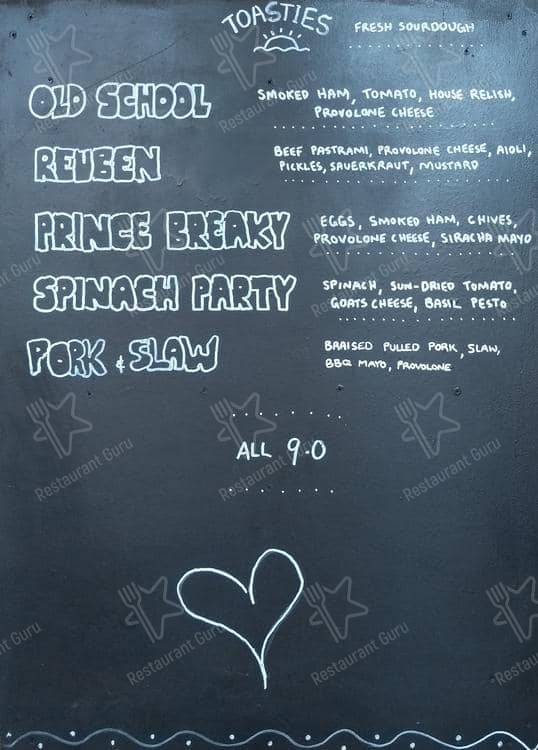 TOASTIES
FRESH SOURDOUGH
OLD SCHOOL
SMOKED HAM, TOMATO, HOUSE RELISH,
PROVOLONE CHEESE
REUBEN
BEEF PASTRAMI, PROVOLONE CHEESE, AIOLI,
PICKLES, SAUERKRAUT, MUSTARD
PRINCE BREAKY
EGGS, SMOKED HAM, CHIVES,
PROVOLONE CHEESE, SIRACHA MAYO
SPINACH PARTY
SPINACH, SUN-DRIED TOMATO,
GOATS CHEESE, BASIL PESTO
PORK & SLAW
BRAISED PULLED PORK, SLAW,
BBQ MAYO, PROVOLONE
ALL 9.0
Restaurant Guru